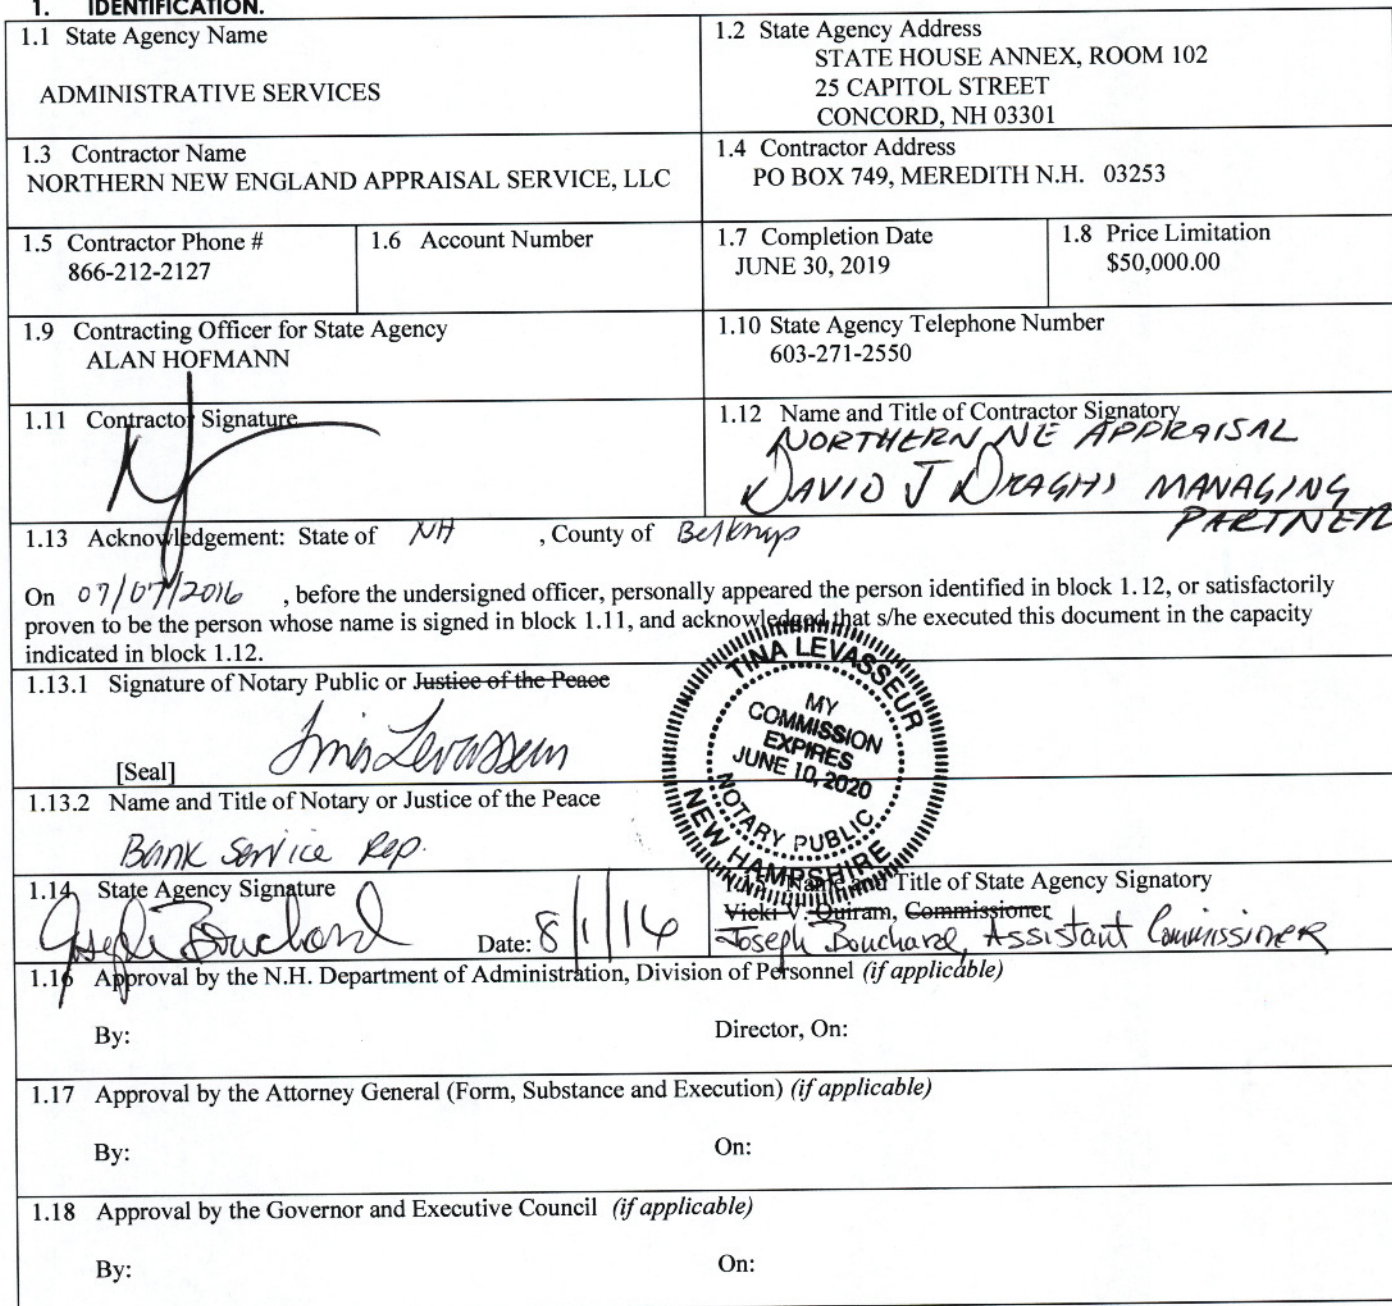 1. IDENTIFICATION.
1.1 State Agency Name
ADMINISTRATIVE SERVICES
1.2 State Agency Address
STATE HOUSE ANNEX, ROOM 102
25 CAPITOL STREET
CONCORD, NH 03301
1.3 Contractor Name
NORTHERN NEW ENGLAND APPRAISAL SERVICE, LLC
1.4 Contractor Address
PO BOX 749, MEREDITH N.H. 03253
1.5 Contractor Phone #
866-212-2127
1.6 Account Number
1.7 Completion Date
JUNE 30, 2019
1.8 Price Limitation
$50,000.00
1.9 Contracting Officer for State Agency
ALAN HOFMANN
1.10 State Agency Telephone Number
603-271-2550
1.11 Contractor Signature
1.12 Name and Title of Contractor Signatory
NORTHERN NE APPRAISAL
DAVID J DRAGHI MANAGING
PARTNER
1.13 Acknowledgement: State of NH , County of Belknap
On 07/07/2016 , before the undersigned officer, personally appeared the person identified in block 1.12, or satisfactorily
proven to be the person whose name is signed in block 1.11, and acknowledged that s/he executed this document in the capacity
indicated in block 1.12.
1.13.1 Signature of Notary Public or Justice of the Peace
Tina Levasseur
[Seal]
TINA LEVASSEUR
MY
COMMISSION
EXPIRES
JUNE 10, 2020
NOTARY PUBLIC
NEW HAMPSHIRE
1.13.2 Name and Title of Notary or Justice of the Peace
Bank Service Rep.
1.14 State Agency Signature
Joseph Bouchard
Date: 8/1/16
Name and Title of State Agency Signatory
Vicki V. Quiram, Commissioner
Joseph Bouchard, Assistant Commissioner
1.16 Approval by the N.H. Department of Administration, Division of Personnel (if applicable)
By:
Director, On:
1.17 Approval by the Attorney General (Form, Substance and Execution) (if applicable)
By:
On:
1.18 Approval by the Governor and Executive Council (if applicable)
By:
On: